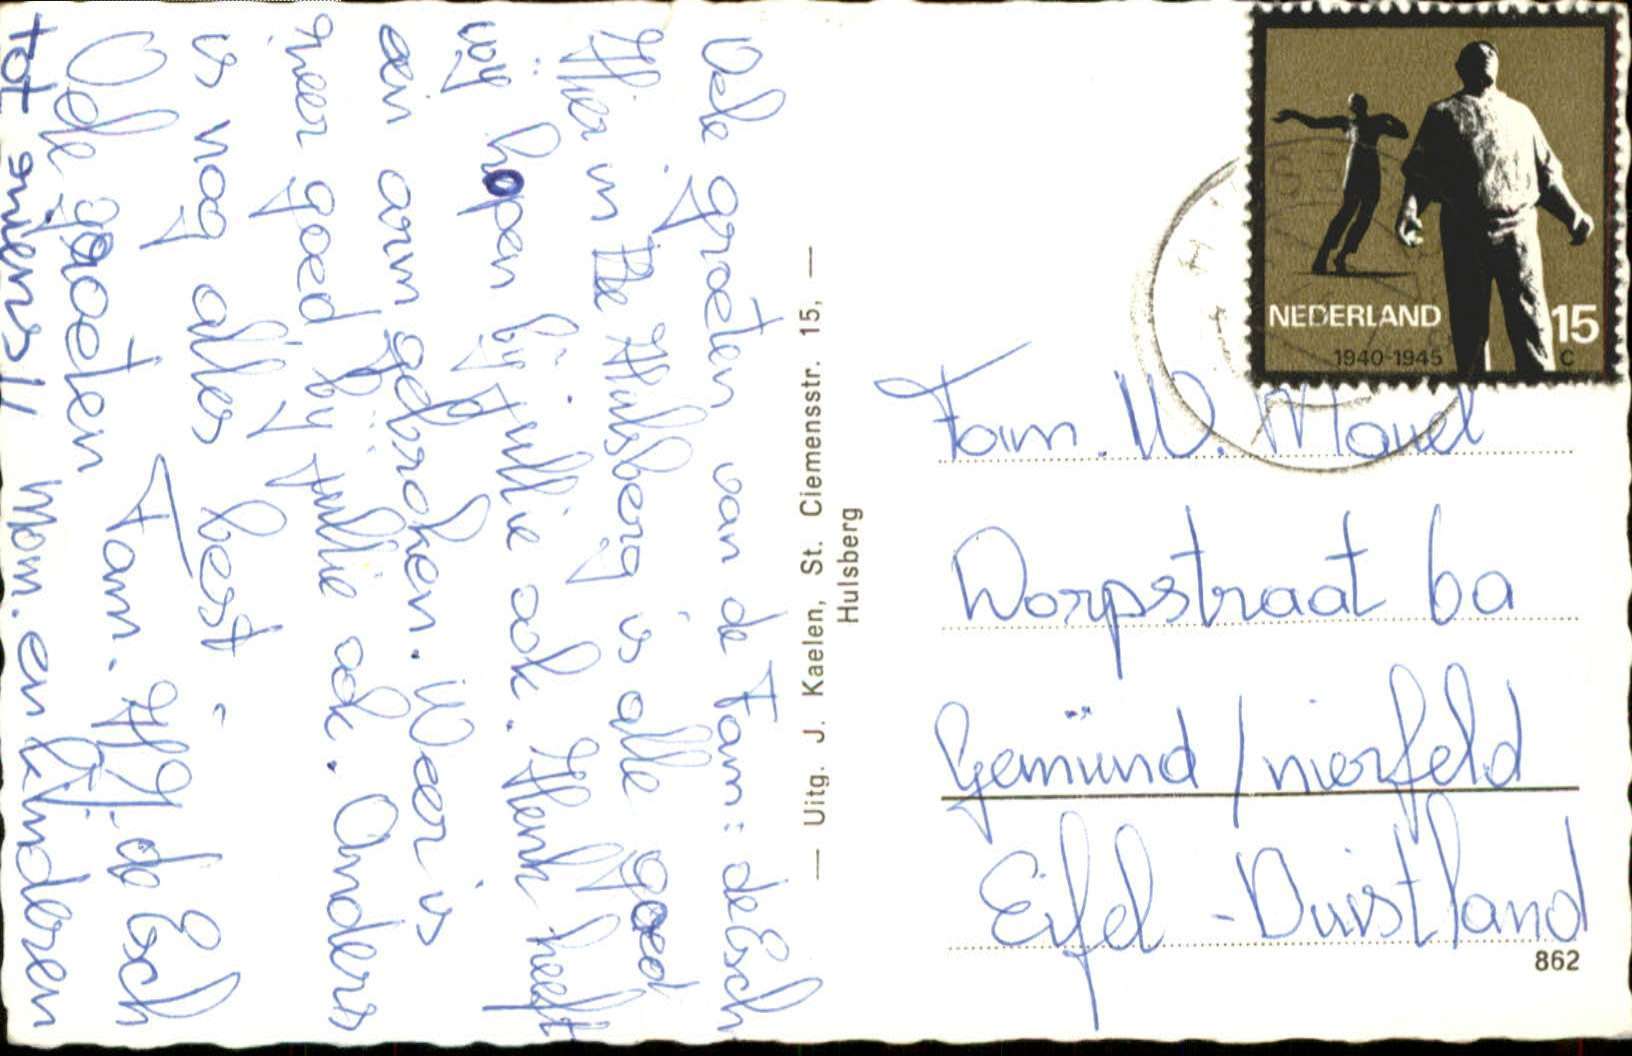 Vele groeten van de Fam: de Esch
Hier in the Hulsberg is alle goed
wy hopen by jullie ook. Henk heeft
een arm gebroken. Weer is
meer goed by jullie ook. Anders
is nog alles best.
Vele groeten Fam. H.J. de Esch
tot ziens!! Mom. en kinderen
— Uitg. J. Kaelen, St. Clemensstr. 15, —
Hulsberg
NEDERLAND 15
1940-1945 C
Fam. W. Mauel
Dorpstraat 6a
Gemünd / nierfeld
Eifel - Duistland
862